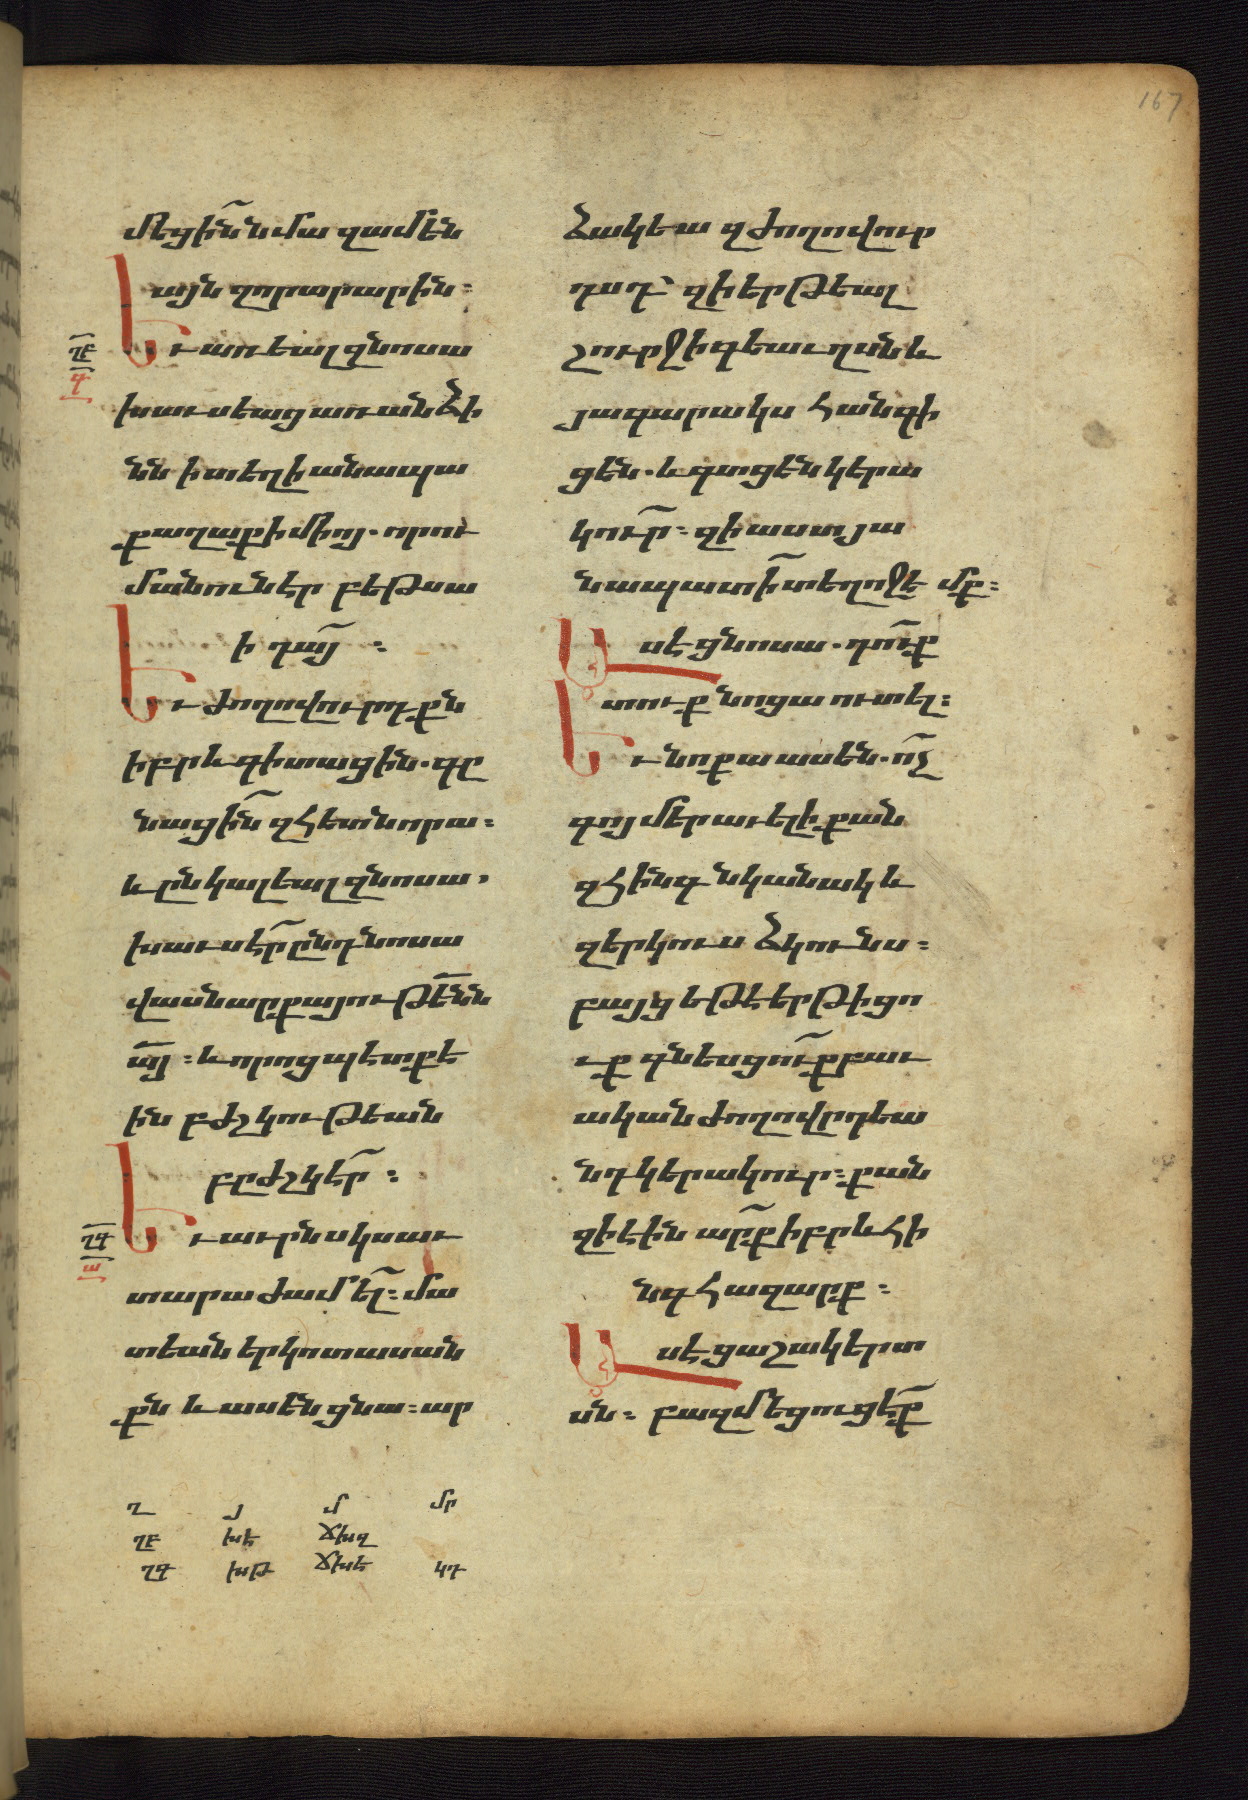 167
մեցին̃ նմա զամեն
այն զորարարին :
Եւ առեալ զնոսա
խաւսեաց առանձի
նն ի տեղի անապա
քաղաքի միոյ . որու
մանուն էր բեթսա
ի դայ̃ :
Եւ ժողովուրդքն
իբրև գիտացին . գը
նացին̃ զհետ նորա :
և ընկալեալ զնոսա .
խաւսէր̃ ընդ նոսա
վասն արքայութե̃նն
ա̃յ : և որոց պետք է
ին բժշկութեան
բըժշկէր̃ :
Եւ աւրն սկսաւ
տարաժամել̃ : մա
տեան երկոտասան
քն և ասեն ցնա : ար
ձակեա զժողովուր
դսդ՝ զի երթեալ
շուրջ ի գեաւղսն և
յագարակս հանգի
ցեն . և գտցեն կերա
կուր̃ : զի աստ յա
նապատի̃ տեղոջ եմք :
Ասէ ցնոսա . դուք̃
տուք նոցա ուտել :
Եւ նոքա ասեն . ո̃չ
գոյ մեր աւելի քան
զհինգ նկանակ և
զերկուս ձկունս :
բայց եթէ երթիցո
ւք գնեսցուք̃ բաւ
ական ժողովրդեա
նդ կերակուր : քան
զի էին ար̃ք իբրև հի
նգ հազարք :
Ասէ ցաշակերտ
սն : բազմեցուցէք̃
ղբ
գ
ղգ
ա
ղ յ մ մր
ղբ խէ ճխզ
ղգ խթ ճխէ կդ